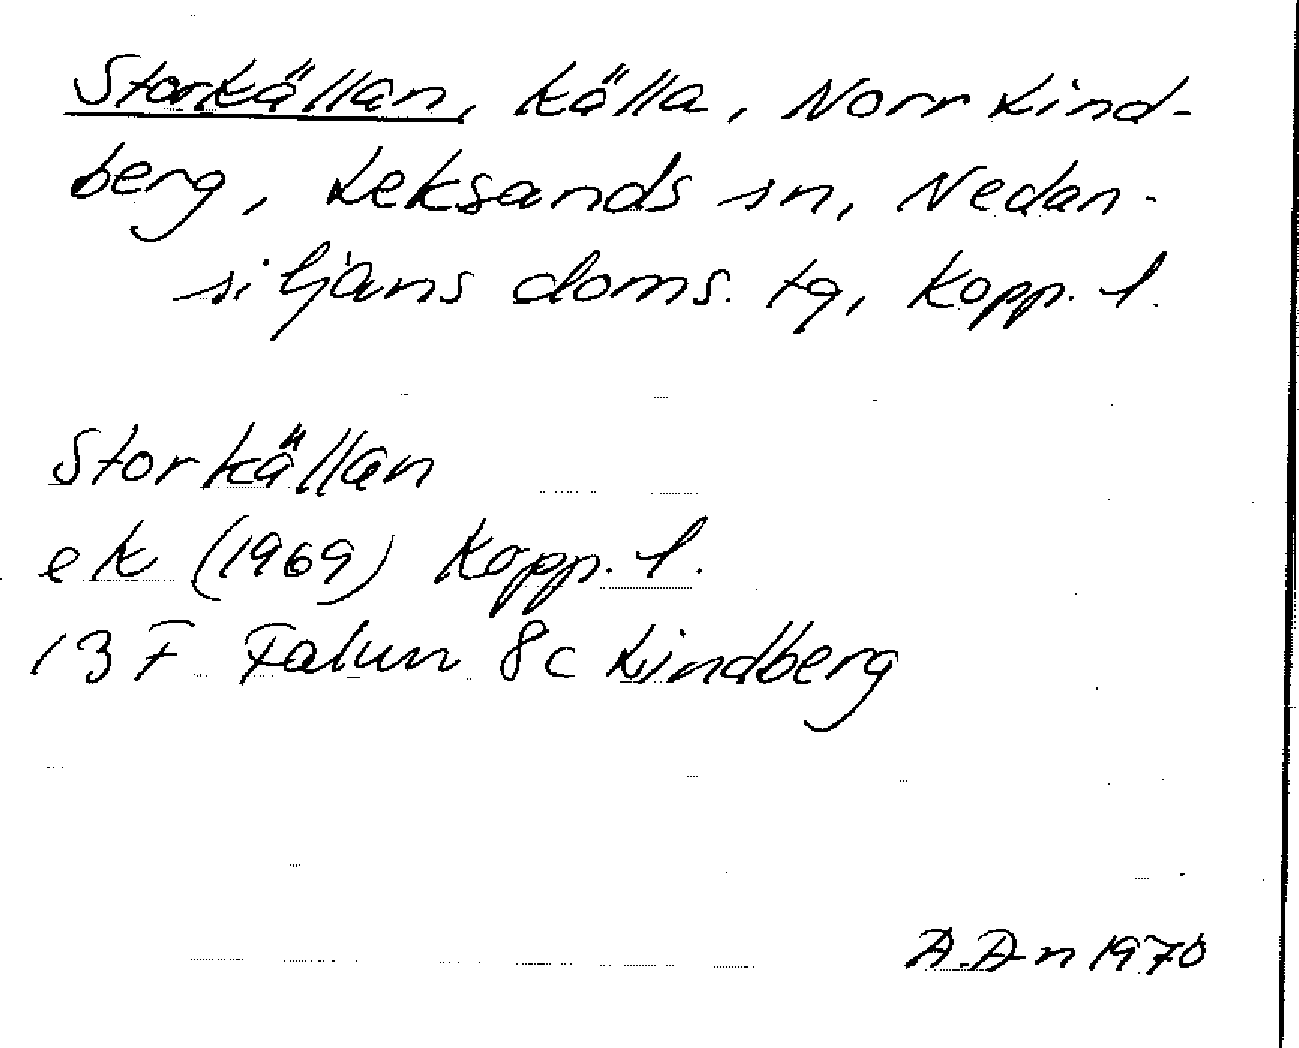 Storkällan, källa, Norr Lind-
berg, Leksands sn, Nedan-
siljans doms. tg, Kopp. l.
Storkällan
ek (1969) Kopp. l.
13 F Falun 8c Lindberg
A.An 1970